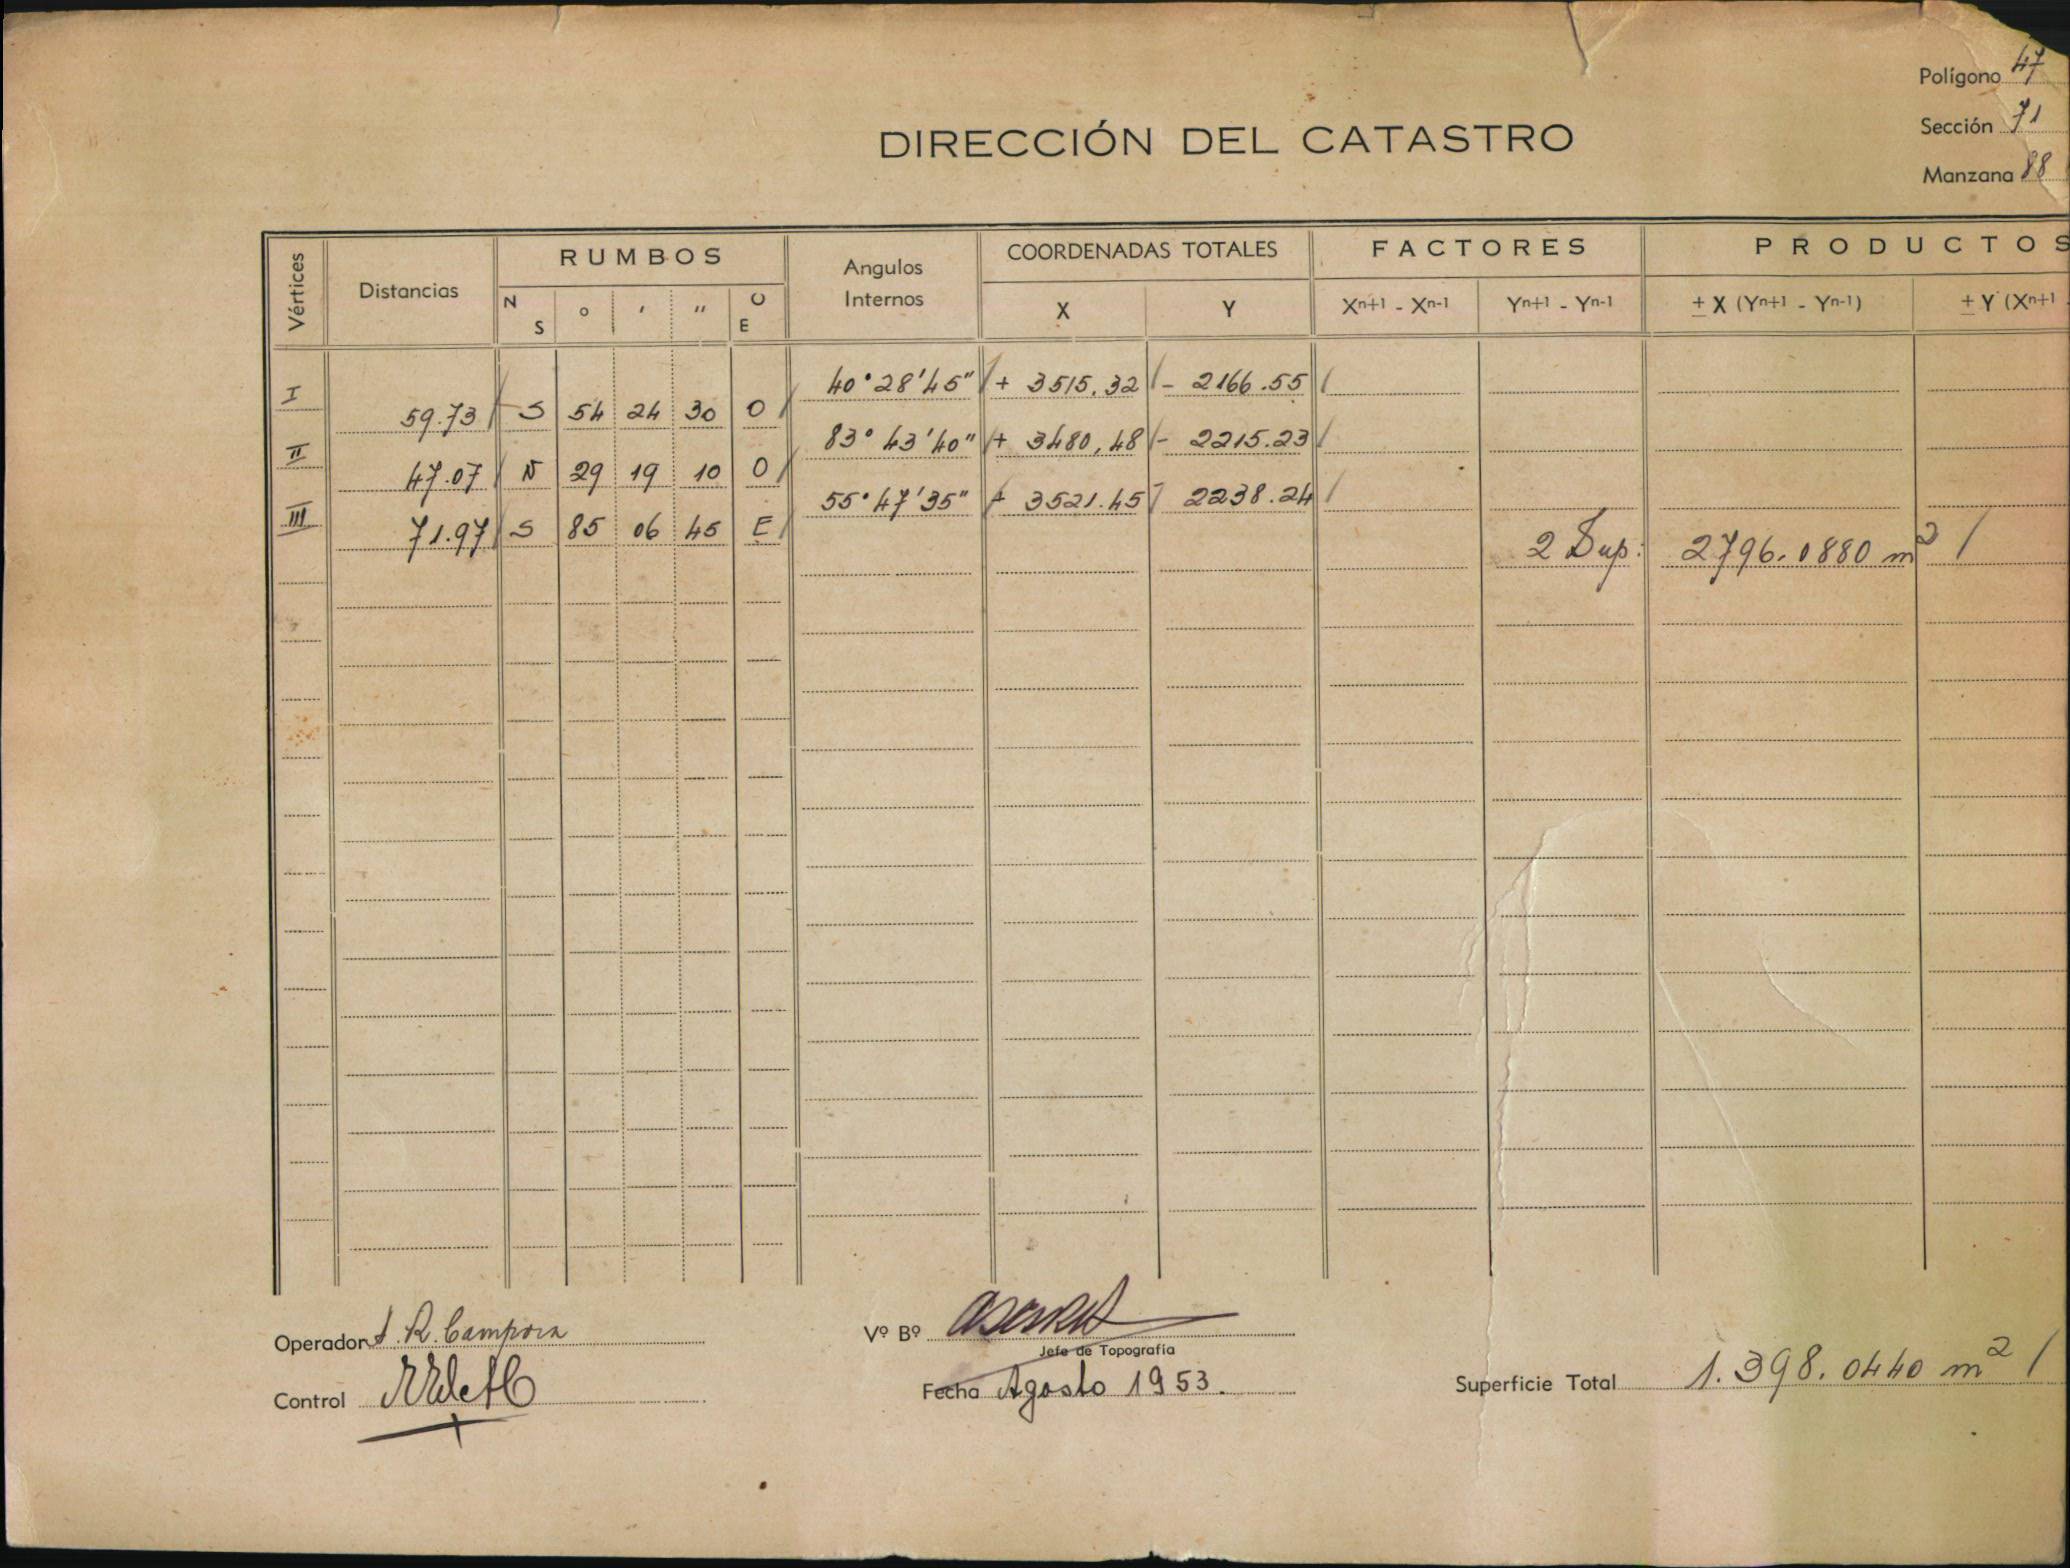 Polígono 47
Sección 71
Manzana 88
DIRECCIÓN DEL CATASTRO
Vértices Distancias RUMBOS Angulos Internos COORDENADAS TOTALES FACTORES PRODUCTOS
N S ° ' " O E X Y Xn+1 - Xn-1 Yn+1 - Yn-1 ± X (Yn+1 - Yn-1) ± Y (Xn+1
I 40°28'45" + 3515.32 - 2166.55
59.73 S 54 24 30 O
II 83° 43'40" + 3480,48 - 2215.23
47.07 N 29 19 10 O
III 55° 47'35" + 3521.45 - 2238.24
71.97 S 85 06 45 E
2 Sup: 2796.0880 m2
Operador A. R. Campora
Vº Bº
Jefe de Topografía
Control
Fecha Agosto 1953.
Superficie Total 1.398.0440 m2